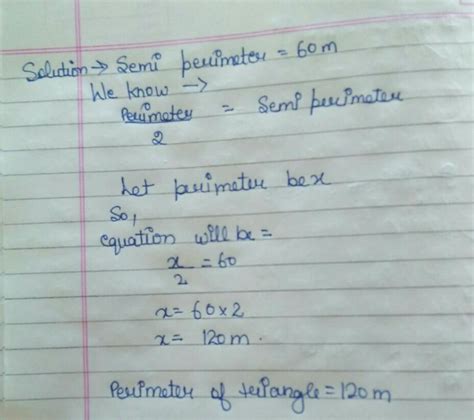 Solution → Semi perimeter = 60m
We know →
Perimeter = Semi perimeter
2
Let perimeter be x
So,
equation will be =
x = 60
2
x = 60 × 2
x = 120 m.
Perimeter of teriangle = 120 m